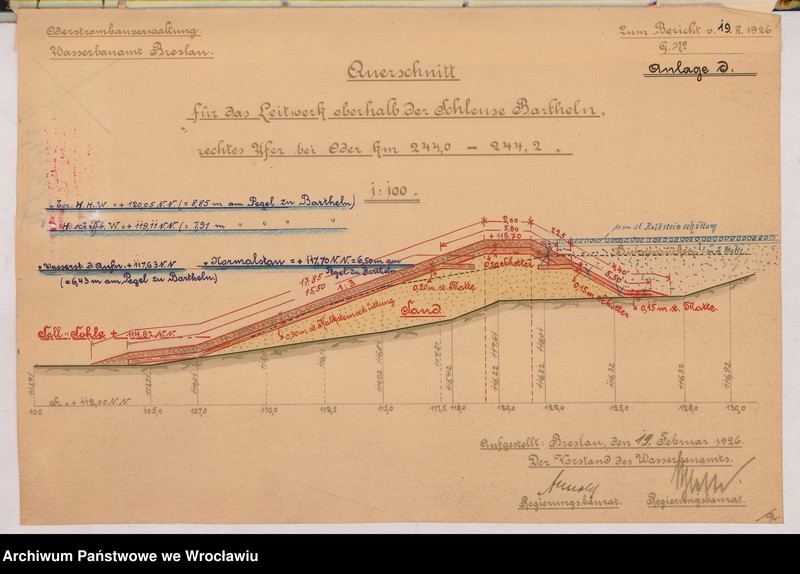 Oderstrombauverwaltung.
Wasserbauamt Breslau.
Zum Bericht v. 19. II. 1926
G. No
Anlage D.
Querschnitt
für das Leitwerk oberhalb der Schleuse Bartheln,
rechtes Ufer bei Oder km 244,0 – 244,2.
1:100.
Ber. H. H. W. = + 120,05 N.N. (= 8,85 m am Pegel zu Bartheln)
H. schiffb. W. = + 119,11 N.N. (= 7,91 m " " " "
Wasserst. d. Aufn. + 117,63 N.N.
(= 6,43 m am Pegel zu Bartheln)
Normalstau = + 117,70 N.N. = 6,50 m am
Pegel zu Bartheln
2,00
5,80
+ 118,70
2,25
10 cm st. Kalksteinschüttung
17,85
15,50
1:3
0,20 m st. Matte
0,30 m st. Kalksteinschüttung
Sand
5,50
0,15 m Schotter
0,15 m st. Matte.
Soll-Sohle + 114,82 N.N.
+ 112,00 N.N.
100
105,0
107,0
110,0
112,5
115,0
117,5
118,0
120,0
122,0
125,0
128,0
130,0
Aufgestellt: Breslau, den 19. Februar 1926.
Der Vorstand des Wasserbauamts.
Regierungsbaurat.
Regierungsbaurat.
Archiwum Państwowe we Wrocławiu